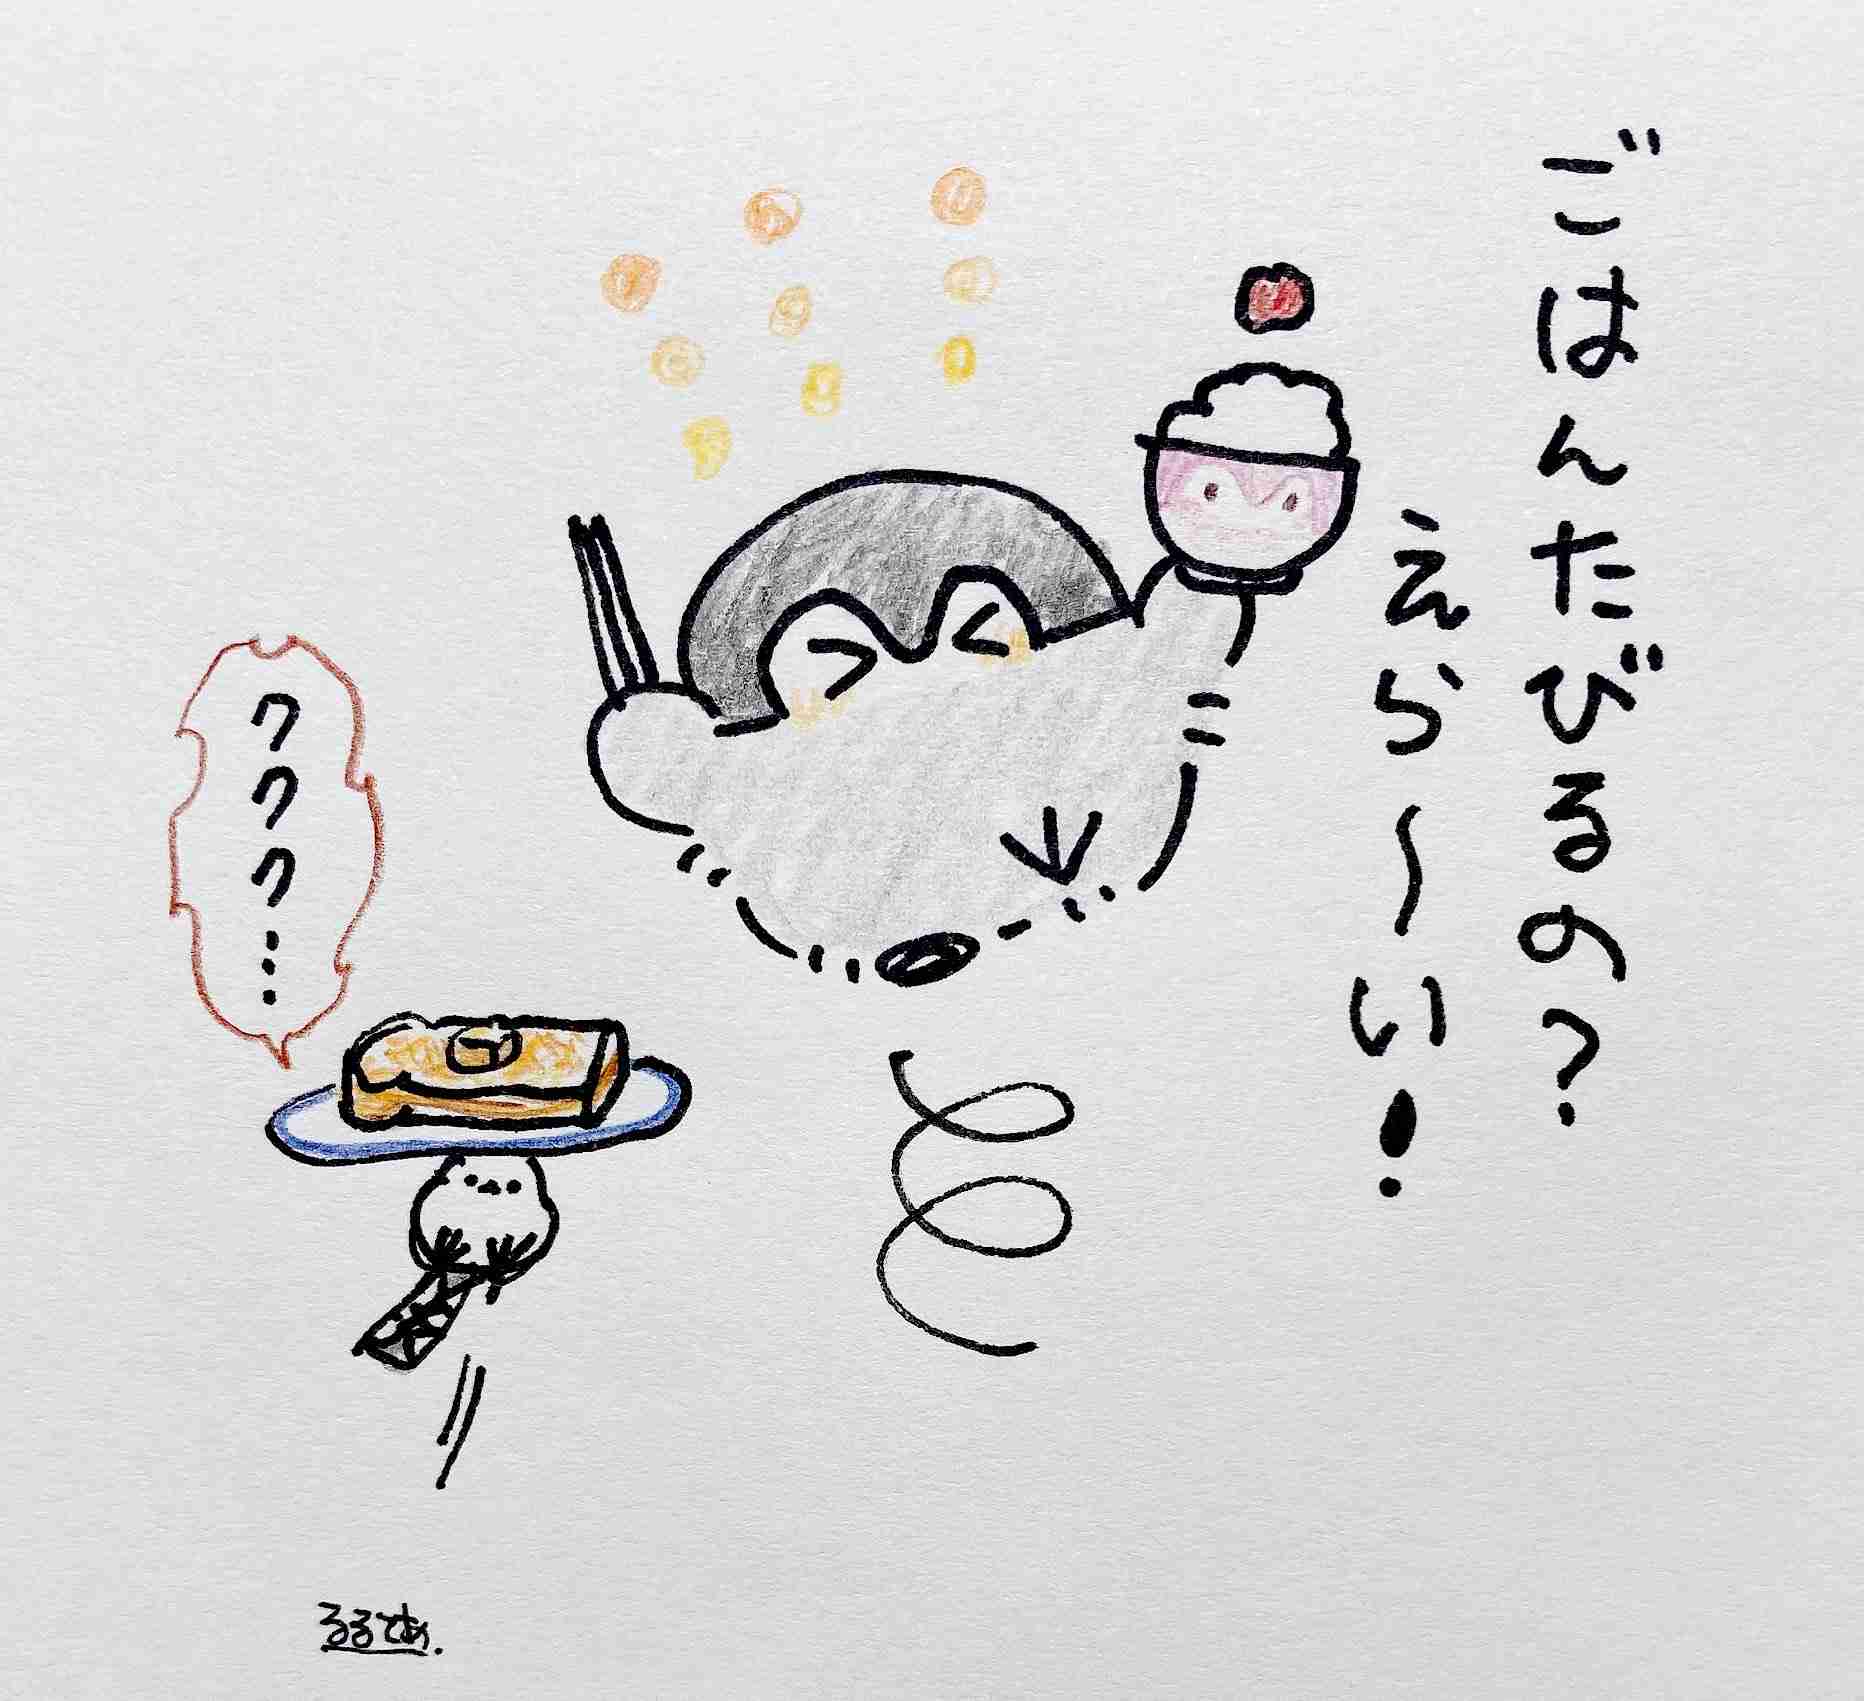 ごはんたびるの？
えら〜い！
ククク…
るるてあ.